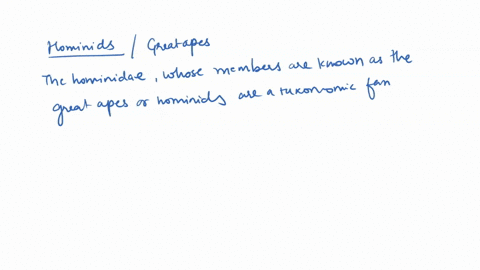 Hominids / Great apes
The hominidae, whose members are known as the
great apes or hominids are a taxonomic fam